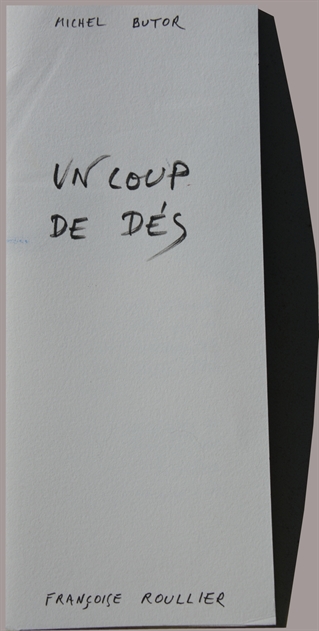 MICHEL BUTOR
UN COUP
DE DÉS
FRANÇOISE ROULLIER